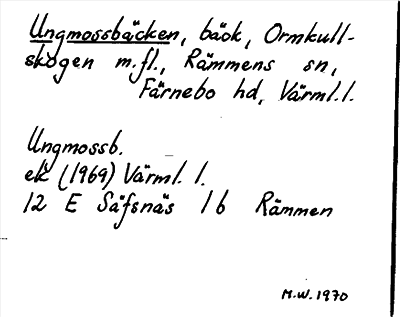 Ungmossbäcken, bäck, Ormkull-
skogen m.fl., Rämmens sn,
Färnebo hd, Värml.l.
Ungmossb.
ek (1969) Värml. l.
12 E Säfsnäs 1 b Rämmen
M.W. 1970